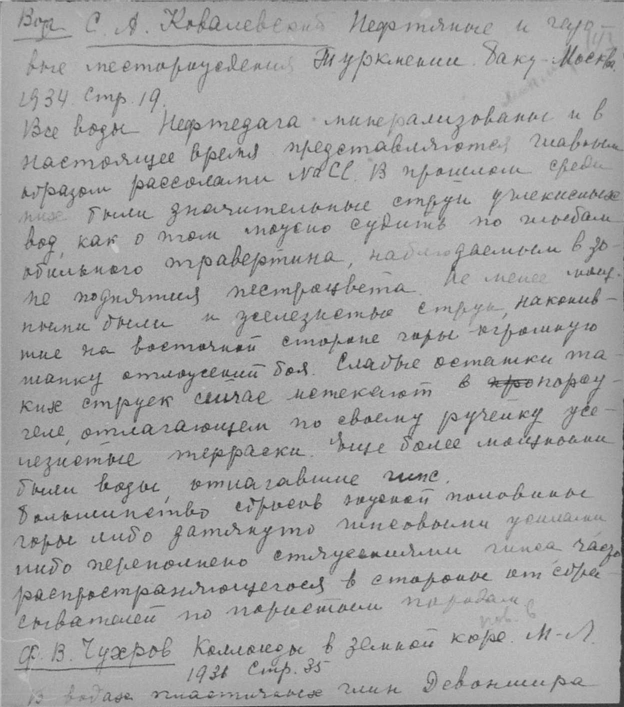 Вор С. А. Ковалевский Нефтяные и газо-
вые месторождения Туркмении. Баку-Москва
1934. Стр. 19.
Все воды Нефтедага минерализованы и в
настоящее время представляются главным
образом рассолами NaCl. В прошлом среди
них были значительные струи углекислых
вод, как о том можно судить по глыбам
обильного травертина, наблюдаемым в зо-
не поднятия пестроцвета. Не менее мощ-
ными были и железистые струи, накопив-
шие на восточной стороне горы огромную
шапку отложений боя. Слабые остатки та-
ких струек сейчас истекают в
отлагающем по своему ручейку же-
лезистые терраски. Еще более мощными
были воды, отлагавшие гипс.
Большинство сбросов южной половины
горы либо затянуто гипсовыми жилами
либо переполнено стяжениями гипса часто
распространяющегося в стороны от сбра-
сывателей по пористым породам
Ф. В. Чухров Коллоиды в земной коре. М-Л.
1936 Стр. 35
В водах пластичных глин Девоншира